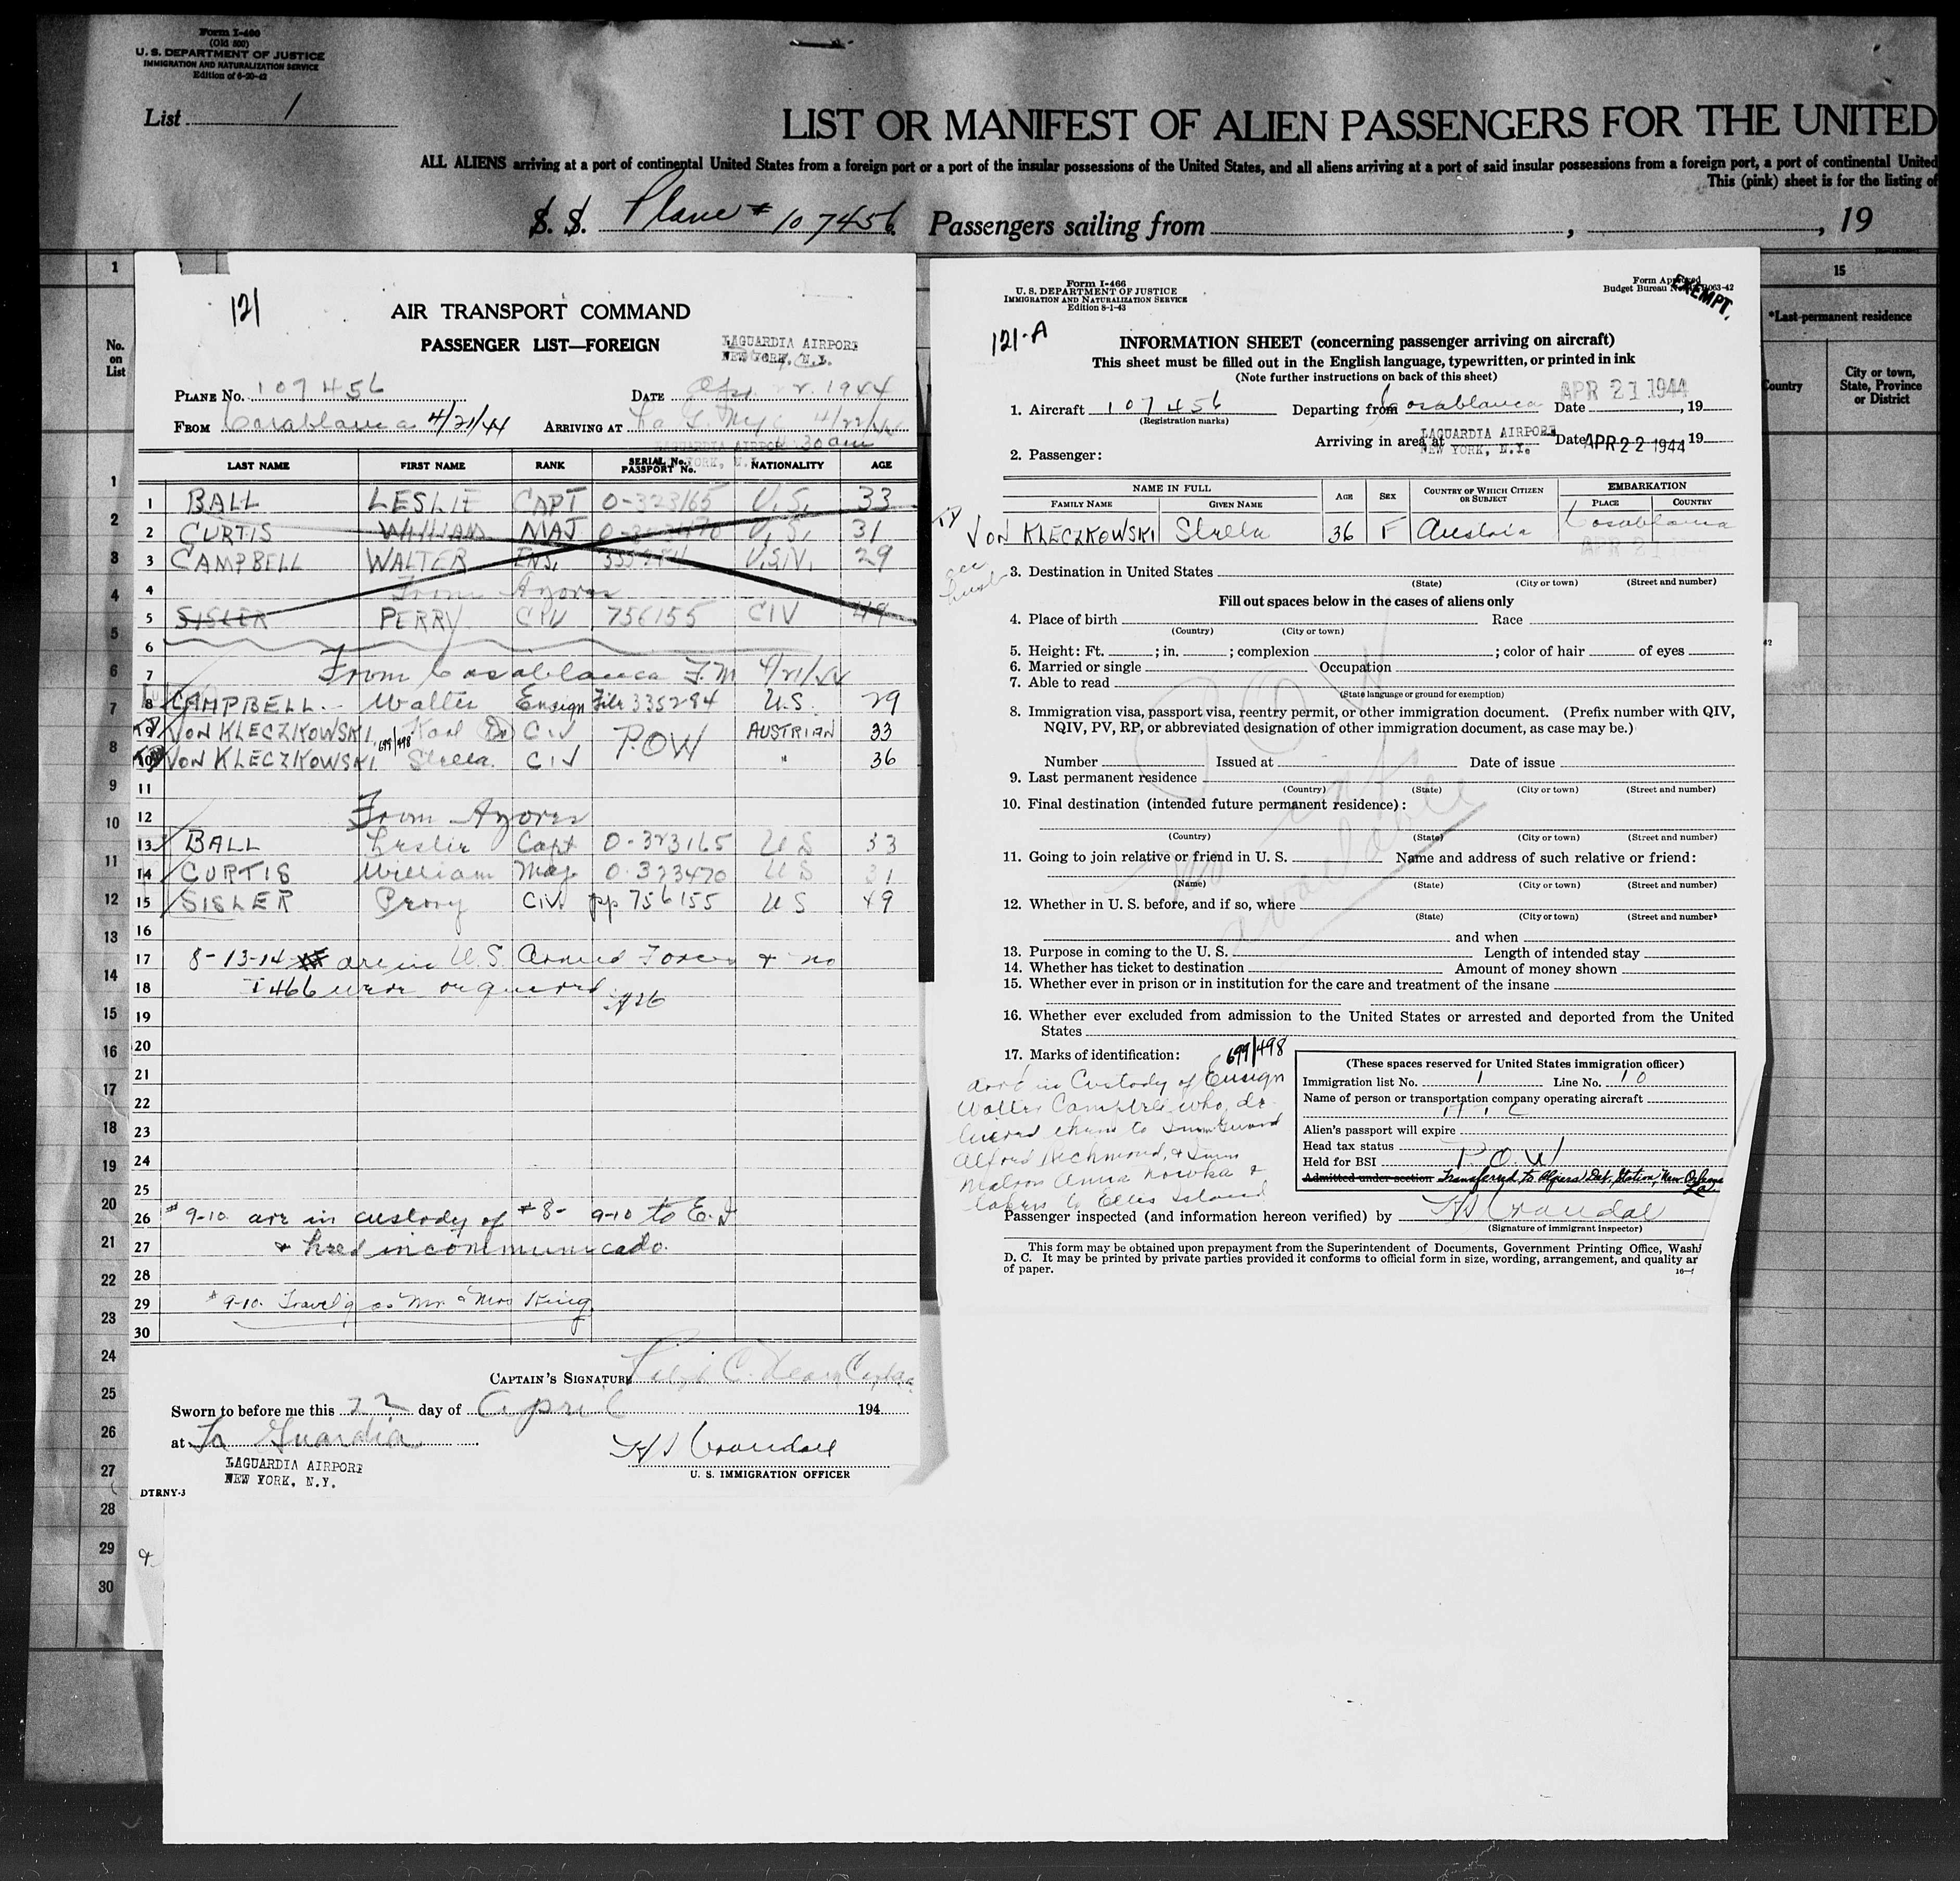 Form I-466
(Old 500)
U. S. DEPARTMENT OF JUSTICE
IMMIGRATION AND NATURALIZATION SERVICE
Edition of 6-20-42
List 1
LIST OR MANIFEST OF ALIEN PASSENGERS FOR THE UNITED
ALL ALIENS arriving at a port of continental United States from a foreign port or a port of the insular possessions of the United States, and all aliens arriving at a port of said insular possessions from a foreign port, a port of continental United
This (pink) sheet is for the listing of
S. S. Plane # 107456 Passengers sailing from , , 19
121
AIR TRANSPORT COMMAND
PASSENGER LIST—FOREIGN
LAGUARDIA AIRPORT
NEW YORK, N.Y.
PLANE No. 107456 DATE Apr. 22. 1944
FROM Casablanca 4/21/44 ARRIVING AT La G. NYC 4/22/44
LAGUARDIA AIRPORT 30 am
YORK, N.Y.
LAST NAME FIRST NAME RANK SERIAL No. PASSPORT No. NATIONALITY AGE
1 BALL LESLIE CAPT 0-323165 U.S. 33
2 CURTIS WILLIAM MAJ U.S. 31
3 CAMPBELL WALTER ENS. U.S.N. 29
4 From Azores
5 SISLER PERRY CIV 756155 CIV 49
6
7 From Casablanca F.M 4/21/44
8 CAMPBELL Walter Ensign File 335284 U.S. 29
9 VON KLECZKOWSKI Karl Civ POW AUSTRIAN 33
699/498
10 VON KLECZKOWSKI Stella CIV " 36
11
12 From Azores
13 BALL Leslie Capt 0-323165 US 33
14 CURTIS William Maj. 0-323470 US 31
15 SISLER Perry Civ. pp 756155 US 49
16
17 8-13-14 are in U.S. Armed Forces & no
18 I 466 were required
19
20
21
22
23
24
25
26 # 9-10 are in custody of #8- 9-10 to E.I
27 & held incommunicado.
28
29 # 9-10. Travel'g as Mr & Mrs King
30
CAPTAIN'S SIGNATURE
Sworn to before me this 22 day of April 194
at La Guardia
LAGUARDIA AIRPORT
NEW YORK, N.Y.
H J Crandall
U. S. IMMIGRATION OFFICER
DTRNY-3
Form I-466
U. S. DEPARTMENT OF JUSTICE
IMMIGRATION AND NATURALIZATION SERVICE
Edition 8-1-43
Form Approved
Budget Bureau No. R063-42
EXEMPT.
121-A
INFORMATION SHEET (concerning passenger arriving on aircraft)
This sheet must be filled out in the English language, typewritten, or printed in ink
(Note further instructions on back of this sheet)
1. Aircraft 107456 Departing from Casablanca Date APR 21 1944, 19
(Registration marks)
Arriving in area at LAGUARDIA AIRPORT NEW YORK, N.Y. Date APR 22 1944 19
2. Passenger:
NAME IN FULL AGE SEX COUNTRY OF WHICH CITIZEN OR SUBJECT EMBARKATION
FAMILY NAME GIVEN NAME PLACE COUNTRY
VON KLECZKOWSKI Stella 36 F Austria Casablanca
APR 21 1944
3. Destination in United States
(State) (City or town) (Street and number)
Fill out spaces below in the cases of aliens only
4. Place of birth Race
(Country) (City or town)
5. Height: Ft. ; in. ; complexion ; color of hair of eyes
6. Married or single Occupation
7. Able to read
(State language or ground for exemption)
8. Immigration visa, passport visa, reentry permit, or other immigration document. (Prefix number with QIV,
NQIV, PV, RP, or abbreviated designation of other immigration document, as case may be.)
Number Issued at Date of issue
9. Last permanent residence
(Country) (State) (City or town) (Street and number)
10. Final destination (intended future permanent residence):
(Country) (State) (City or town) (Street and number)
11. Going to join relative or friend in U. S. Name and address of such relative or friend:
(Name) (State) (City or town) (Street and number)
12. Whether in U. S. before, and if so, where
(State) (City or town) (Street and number)
and when
13. Purpose in coming to the U. S. Length of intended stay
14. Whether has ticket to destination Amount of money shown
15. Whether ever in prison or in institution for the care and treatment of the insane
16. Whether ever excluded from admission to the United States or arrested and deported from the United
States
POW
no
available
17. Marks of identification: 699/498
in Custody of Ensign
Walter Campbell who de-
livered them to Imm Guard
Alfred Richmond, & Imm
Matron Anna Nowka &
taken to Ellis Island
(These spaces reserved for United States immigration officer)
Immigration list No. 1 Line No. 10
Name of person or transportation company operating aircraft
ATC
Alien's passport will expire
Head tax status
Held for BSI POW
Admitted under section Transferred to Algiers Det. Station, New Orleans La.
Passenger inspected (and information hereon verified) by H J Crandall
(Signature of immigrant inspector)
This form may be obtained upon prepayment from the Superintendent of Documents, Government Printing Office, Wash
D. C. It may be printed by private parties provided it conforms to official form in size, wording, arrangement, and quality
of paper.
15
*Last permanent residence
Country City or town, State, Province or District
No. on List
1
2
3
4
5
6
7
8
9
10
11
12
13
14
15
16
17
18
19
20
21
22
23
24
25
26
27
28
29
30